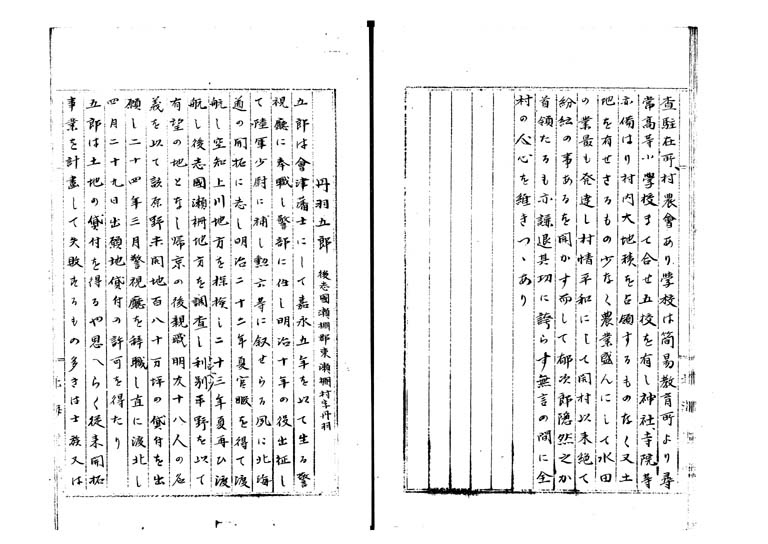 査駐在所村農會あり學校は簡易教育所より尋
常高等小學校まて合せ五校を有し神社寺院等
亦備はり村内大地積を占領するものなく又土
地を有せさるもの少なく農業盛んにして水田
の業最も発達し村情平和にして開村以来絶て
紛紜の事あるを聞かす而して郁次郎隠然之か
首領たるも亦謙退其功に誇らす無言の間に全
村の人心を維きつゝあり
丹羽五郎 後志國瀬棚郡東瀬棚村字丹羽
五郎は會津藩士にして嘉永五年を以て生る警
視廳に奉職し警部に任し明治十年の役出征し
て陸軍少尉に補し勲六等に叙せらる夙に北海
道の開拓に志し明治二十二年夏官暇を得て渡
航し空知上川地方を探検し二十三年夏再ひ渡
航し後志國瀬棚地方を調査し利別平野を以て
有望の地となし帰京の後親戚明友十八人の名
義を以て該原野未開地百八十万坪の貸付を出
願し二十四年三月警視廳を辞職し直に渡北し
四月二十九日出願地貸付の許可を得たり
五郎は土地の貸付を得るや思へらく従来開拓
事業を計畫して失敗するもの多きは士族又は